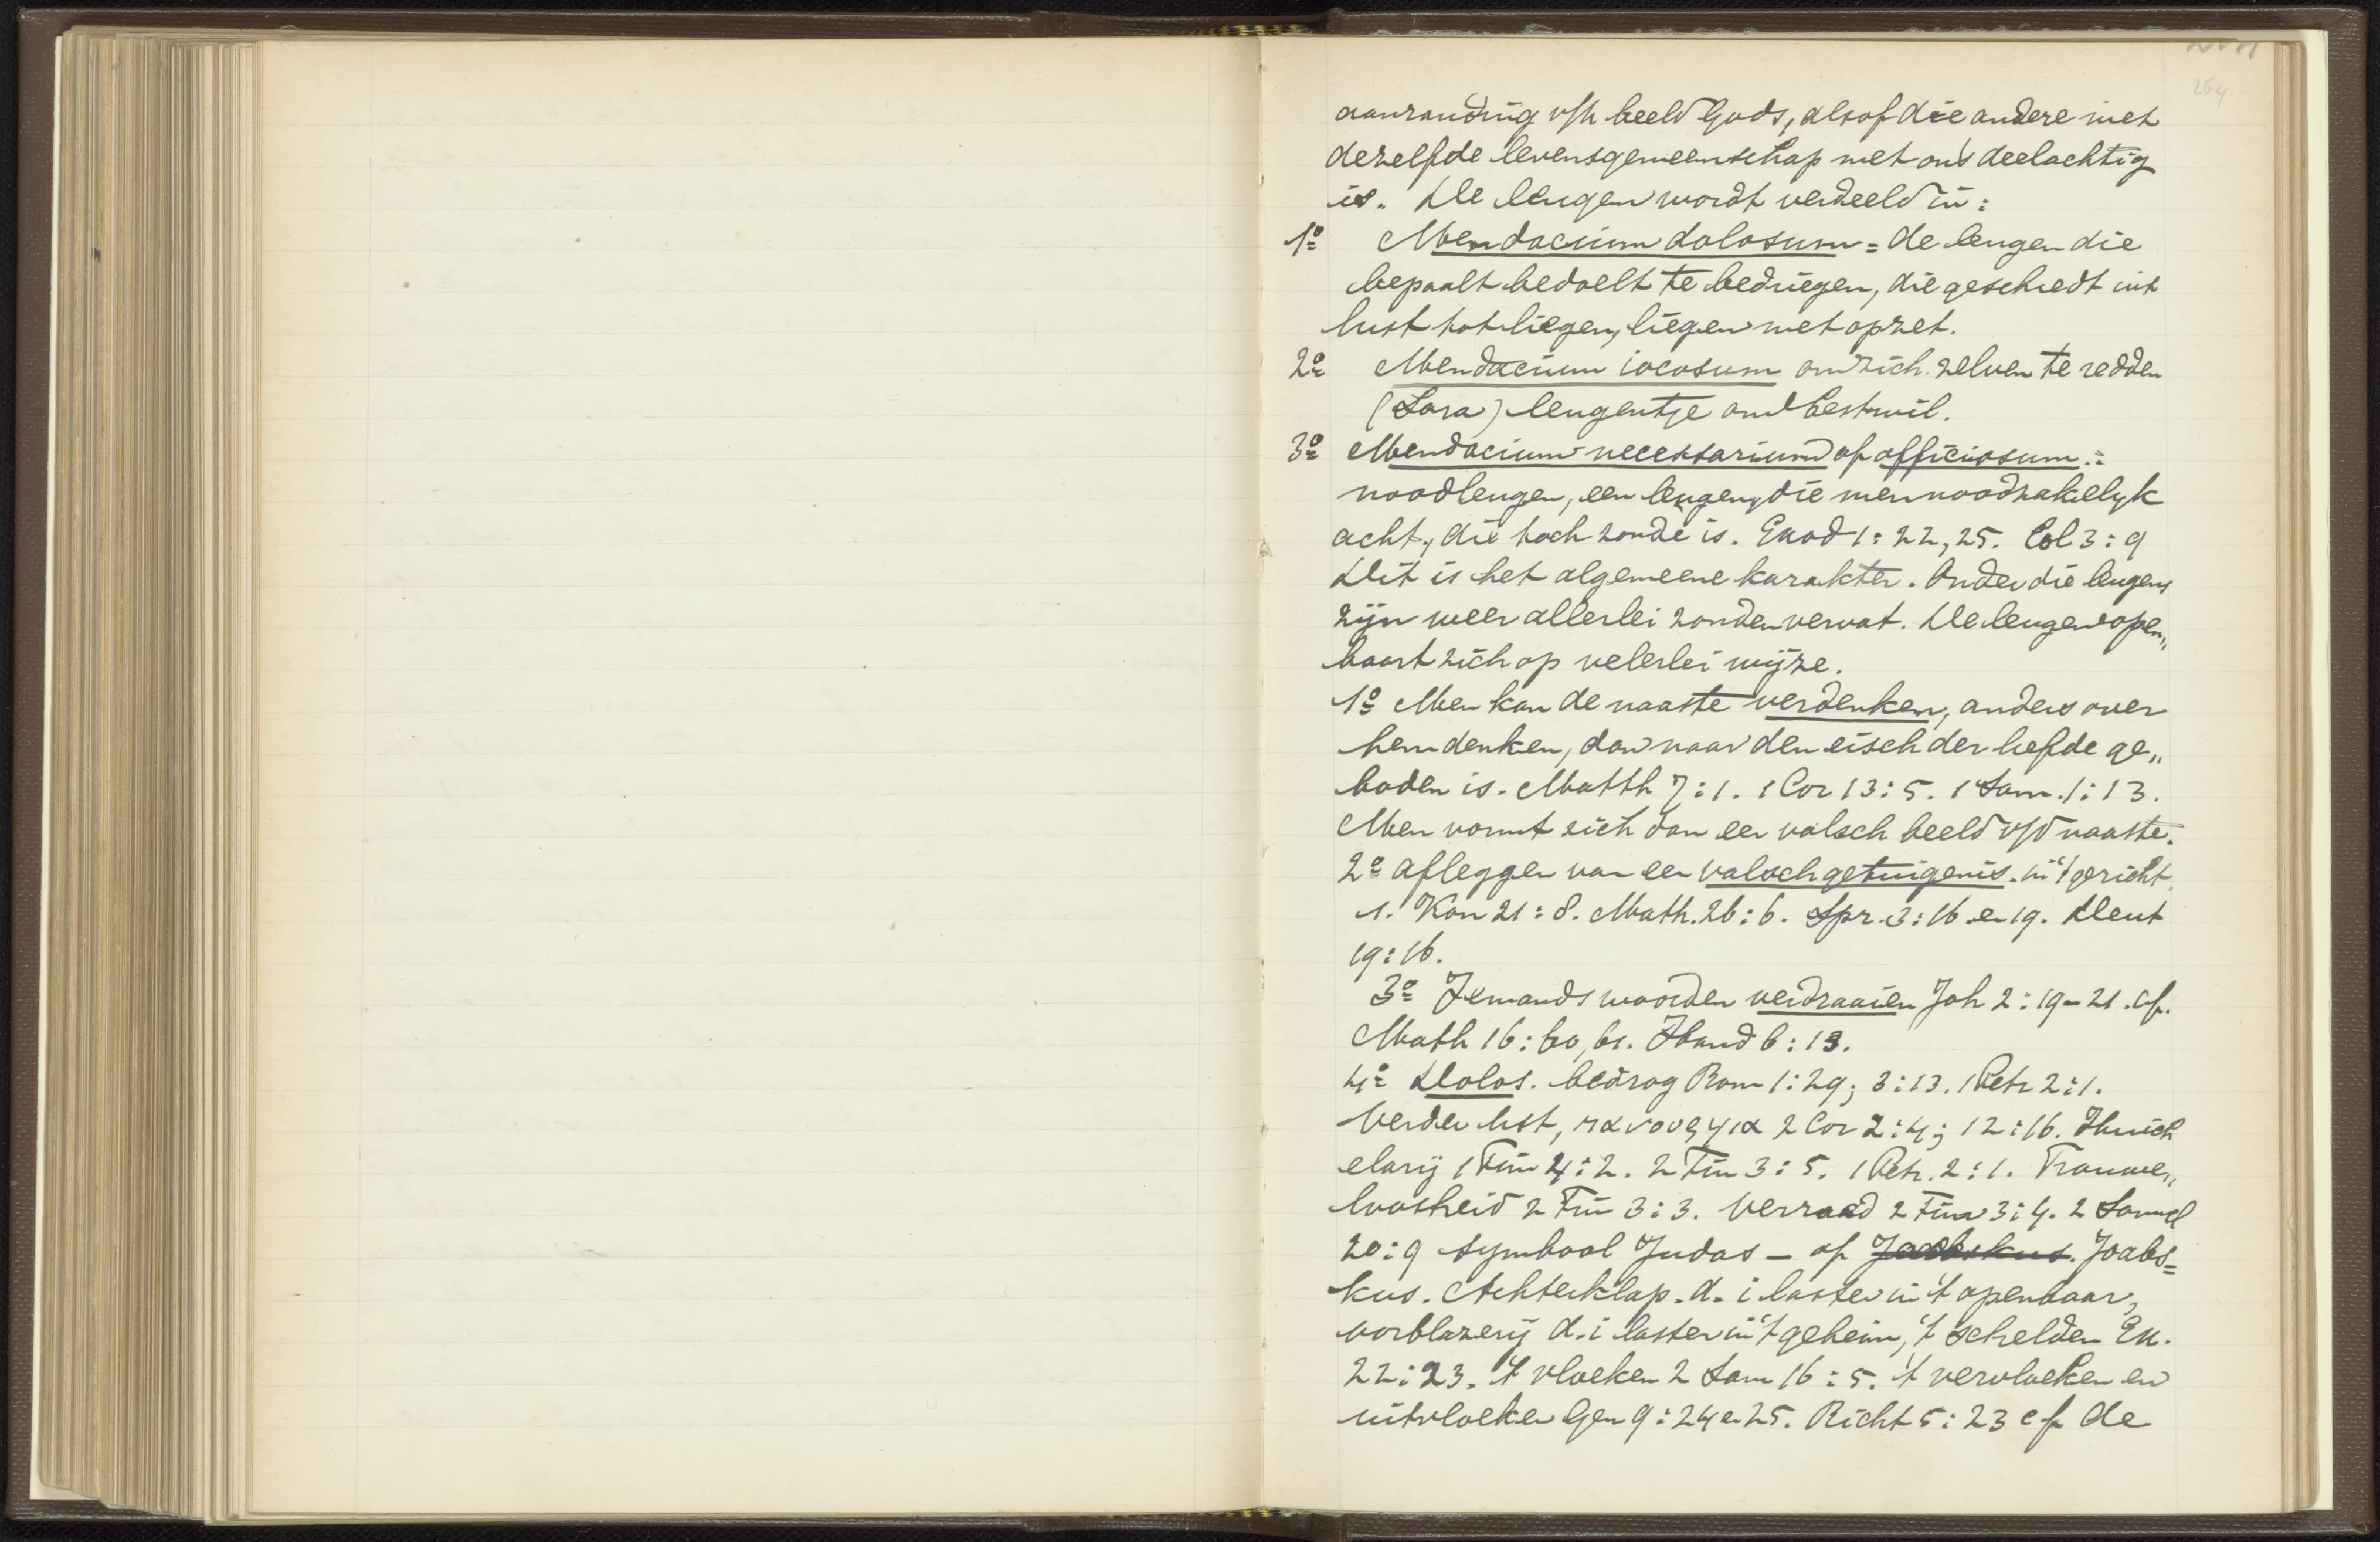 264
aanranding v/h beeld Gods, alsof die andere niet
dezelfde levensgemeenschap met ons deelachtig
is. De leugen wordt verdeeld in:
1º Mendacium dolosum = de leugen die
bepaalt bedoelt te bedriegen, die geschiedt uit
lust tot liegen, liegen met opzet.
2º Mendacium iocosum om zich zelven te redden
(Sara) leugentje om bestwil.
3º Mendacium necessarium of officiosum.:
noodleugen, een leugen, die men noodzakelijk
acht, die toch zonde is. Exod 1:22,25. Col 3:9
Dit is het algemeene karakter. Onder die leugens
zijn weer allerlei zonden vervat. De leugen open„
baart zich op velerlei wijze.
1º Men kan de naaste verdenken, anders over
hem denken, dan naar den eisch der liefde ge„
boden is. Matth 7:1. 1 Cor 13:5. 1 Sam. 1:13.
Men vormt zich dan een valsch beeld v/d naaste.
2º afleggen van een valsch getuigenis. in 't gericht.
1. Kon 21:8. Math. 26:6. Spr. 3:16 en 19. Deut
19:16.
3º Iemands woorden verdraaien Joh 2:19-21. cf.
Math 16:60,61. Hand 6:13.
4º Dolos. bedrog Rom 1:29; 3:13. 1 Petr 2:1.
Verder list, πανουργια 2 Cor 2:4; 12:16. Huich
elarij 1 Tim 4:2. 2 Tim 3:5. 1 Petr. 2:1. Trouwe„
loosheid 2 Tim 3:3. Verraad 2 Tim 3:4. 2 Samuel
20:9 symbool Judas – of Joabskus. Joabs=
kus. Achterklap. d. i laster in 't openbaar,
oorblazerij d. i laster in 't geheim, 't schelden Ex.
22:23. 't vloeken 2 Sam 16:5. 't vervloeken en
uitvloeken Gen 9:24 en 25. Richt 5:23 cf de